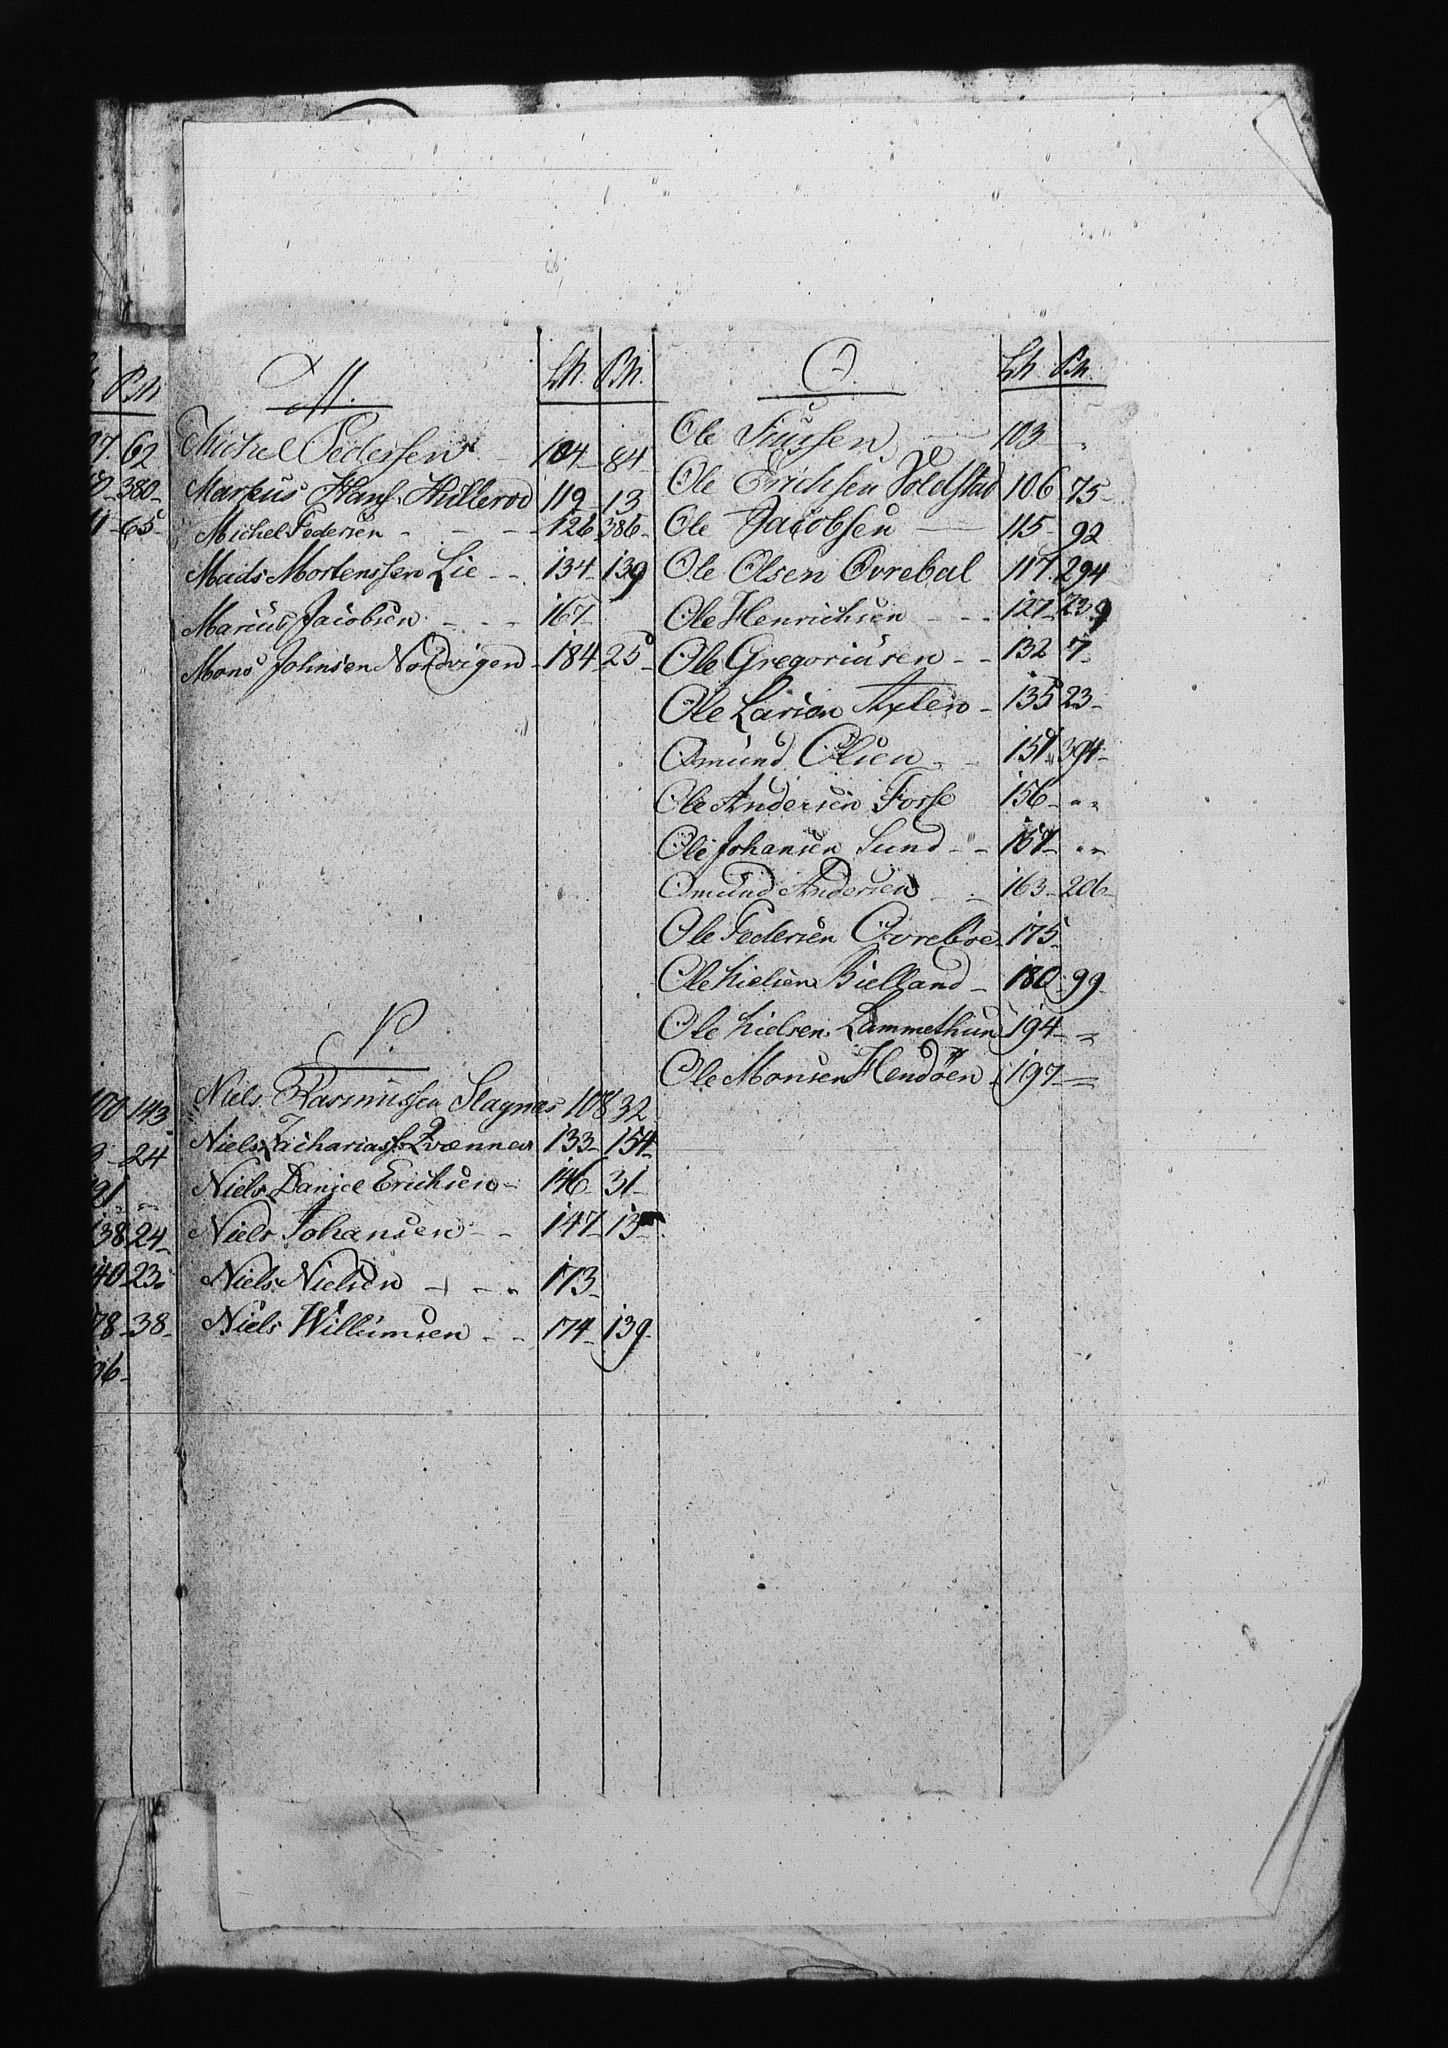 Bh
62
380
65
M. Lh. Bh.
Michel Pedersen 104 84
Markus Hans. Hilleröd 119 13
Michel Pedersen 126 386
Mads Mortenssen Lie 134 139
Marius Jacobsen 167
Mons Johnsen Nordvigen 184 25
N.
100 143
24
138 24
140 23
78 38
96
Niels Rasmussen Slagnæs 108 32
Niels Zacharias. Qvænnes 133 154
Niels Daniel Erichsen 146 31
Niels Johansen 147 13
Niels Nielsen 173
Niels Willumsen 174 139
O. Lh. Bh.
Ole 103
Ole Erichsen Voldstad 106 75
Ole Jacobsen 115 92
Ole Olsen Övrebal 117 294
Ole Henrichsen 127 239
Ole Gregoriusen 132 7
Ole Larsen 135 23
Osmund Olsen 151 394
Ole Andersen Fosse 156 " "
Ole Johansen Sund 157 " "
Osmund Andersen 163 206
Ole Pedersen Övreböe 175
Ole Nielsen Kielland 180 99
Ole Nielsen Lammethun 194 "
Ole Monsen Hendöen 197 "